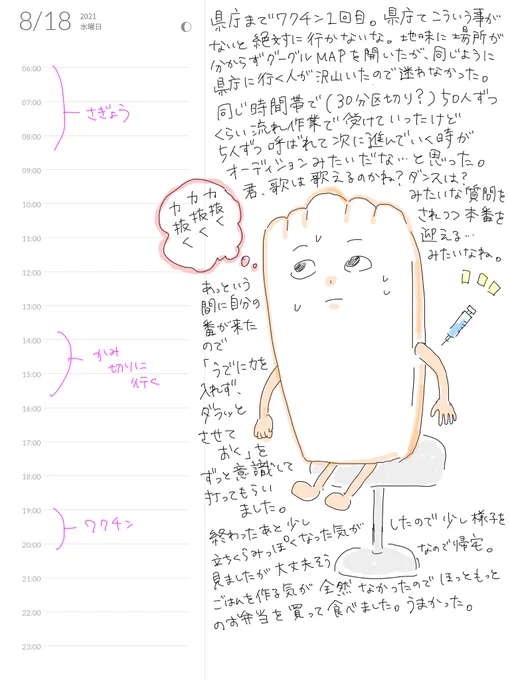 8/18
2021
水曜日
06:00
07:00
08:00
09:00
10:00
11:00
12:00
13:00
14:00
15:00
16:00
17:00
18:00
19:00
20:00
21:00
22:00
23:00
さぎょう
かみ
切りに
行く
ワクチン
県庁までワクチン1回目。県庁てこういう事が
ないと絶対に行かないな。地味に場所が
分からずグーグルMAPを開いたが、同じように
県庁に行く人が沢山いたので迷わなかった。
同じ時間帯で(30分区切り?)50人ずつ
くらい流れ作業で受けていったけど
5人ずつ呼ばれて次に進んでいく時が
オーディションみたいだな…と思った。
君、歌は歌えるのかね?ダンスは?
みたいな質問を
されつつ本番を
迎える…
みたいなね。
力抜く
力抜く
力抜く
あっという
間に自分の
番が来た
ので
「うでに力を
入れず、
ダラッと
させて
おく」を
ずっと意識して
打ってもらい
ました。
終わったあと少し
立ちくらみっぽくなった気がしたので少し様子を
見ましたが大丈夫そうなので帰宅。
ごはんを作る気が全然なかったのでほっともっと
のお弁当を買って食べました。うまかった。